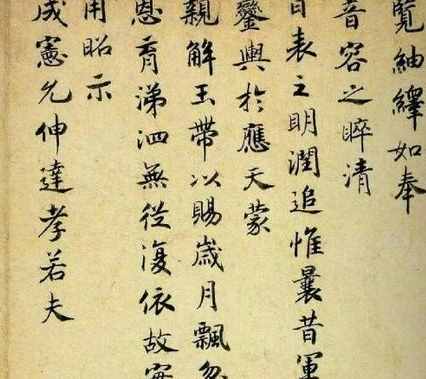 覽紬繹如奉
音容之睟清
日表之明潤追惟曩昔軍
鑾輿於應天蒙
親解玉帶以賜歲月飄忽
恩育涕泗無從復依故
用昭示
成憲允伸達孝若夫